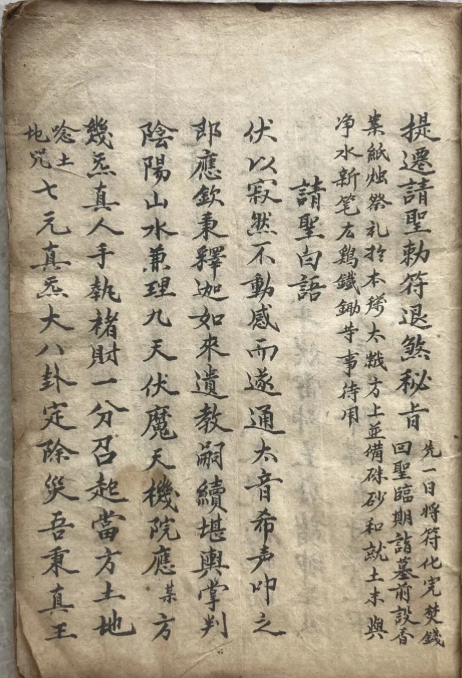 提遷請聖勅符退煞秘旨
先一日將符化完焚錢
回聖臨期詣墓前設香
業紙烛祭礼於本塋太歲方上並備硃砂和就土末與
净水新笔右鷄鐵鋤等事待用
請聖白語
伏以寂然不動感而遂通太音希声叩之
即應欽秉釋迦如來遺教嗣續堪輿掌判
陰陽山水兼理九天伏魔天機院應某方
幾炁真人手執楮財一分召起當方土地
唸土
地咒七元真炁大八卦定除災吾秉真王